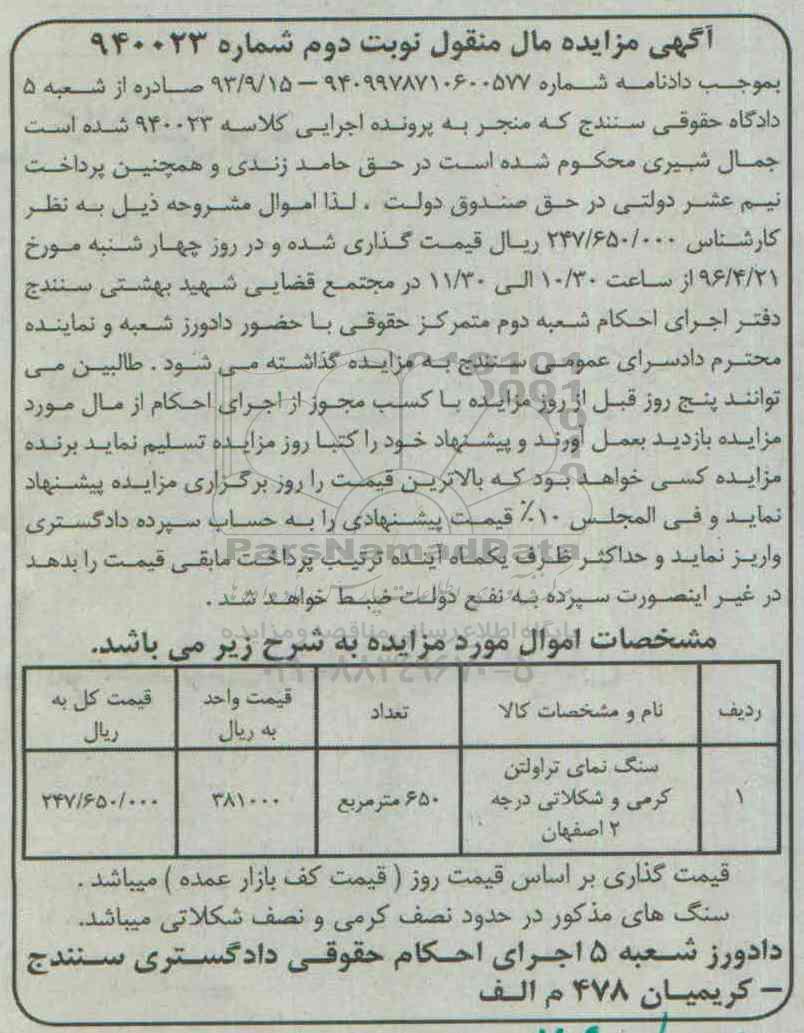 آگهی مزایده مال منقول نوبت دوم شماره ۹۴۰۰۲۳
بموجب دادنامه شماره ۹۴۰۹۹۷۸۷۱۰۶۰۰۵۷۷ – ۹۳/۹/۱۵ صادره از شعبه ۵
دادگاه حقوقی سنندج که منجر به پرونده اجرایی کلاسه ۹۴۰۰۲۳ شده است
جمال شبیری محکوم شده است در حق حامد زندی و همچنین پرداخت
نیم عشر دولتی در حق صندوق دولت . لذا اموال مشروحه ذیل به نظر
کارشناس ۲۴۷/۶۵۰/۰۰۰ ریال قیمت گذاری شده و در روز چهار شنبه مورخ
۹۶/۴/۲۱ از ساعت ۱۰/۳۰ الی ۱۱/۳۰ در مجتمع قضایی شهید بهشتی سنندج
دفتر اجرای احکام شعبه دوم متمرکز حقوقی با حضور دادورز شعبه و نماینده
محترم دادسرای عمومی سنندج به مزایده گذاشته می شود . طالبین می
توانند پنج روز قبل از روز مزایده با کسب مجوز از اجرای احکام از مال مورد
مزایده بازدید بعمل آورند و پیشنهاد خود را کتبا روز مزایده تسلیم نماید برنده
مزایده کسی خواهد بود که بالاترین قیمت را روز برگزاری مزایده پیشنهاد
نماید و فی المجلس ۱۰٪ قیمت پیشنهادی را به حساب سپرده دادگستری
واریز نماید و حداکثر ظرف یکماه آینده ترتیب پرداخت مابقی قیمت را بدهد
در غیر اینصورت سپرده به نفع دولت ضبط خواهد شد .
ParsNamadData
پایگاه اطلاع رسانی مناقصه و مزایده
مشخصات اموال مورد مزایده به شرح زیر می باشد.
۰۲۱-۸۸۳۴۹۶۷۰-۵
ردیف نام و مشخصات کالا تعداد قیمت واحد به ریال قیمت کل به ریال
۱ سنگ نمای تراولتن کرمی و شکلاتی درجه ۲ اصفهان ۶۵۰ مترمربع ۳۸۱۰۰۰ ۲۴۷/۶۵۰/۰۰۰
قیمت گذاری بر اساس قیمت روز ( قیمت کف بازار عمده ) میباشد .
سنگ های مذکور در حدود نصف کرمی و نصف شکلاتی میباشد.
دادورز شعبه ۵ اجرای احکام حقوقی دادگستری سنندج
– کریمیان ۴۷۸ م الف